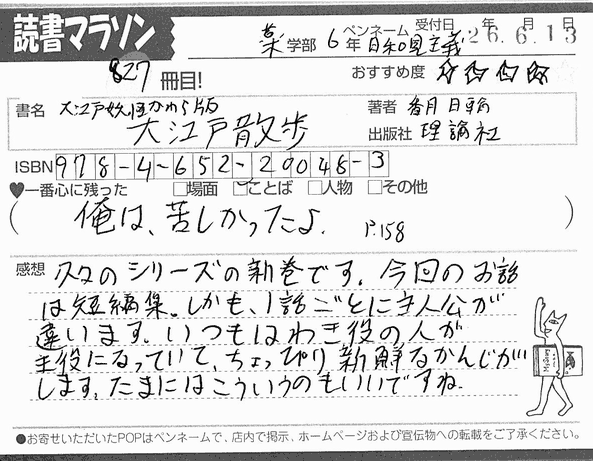 読書マラソン
薬学部 6年 ペンネーム 日和見主義 受付日 26年6月13日
827冊目!
おすすめ度 ☆☆☆☆
書名 大江戸妖怪かわら版
大江戸散歩
著者 香月日輪
出版社 理論社
ISBN 978-4-652-20048-3
♥一番心に残った □場面 □ことば □人物 □その他
(俺は、苦しかったよ. P.158)
感想 久々のシリーズの新巻です。今回のお話
は短編集。しかも、1話ごとに主人公が
違います。いつもはわき役の人が
主役になっていて、ちょっぴり新鮮なかんじが
します。たまにはこういうのもいいですね.
●お寄せいただいたPOPはペンネームで、店内で掲示、ホームページおよび宣伝物への転載をご了承ください。